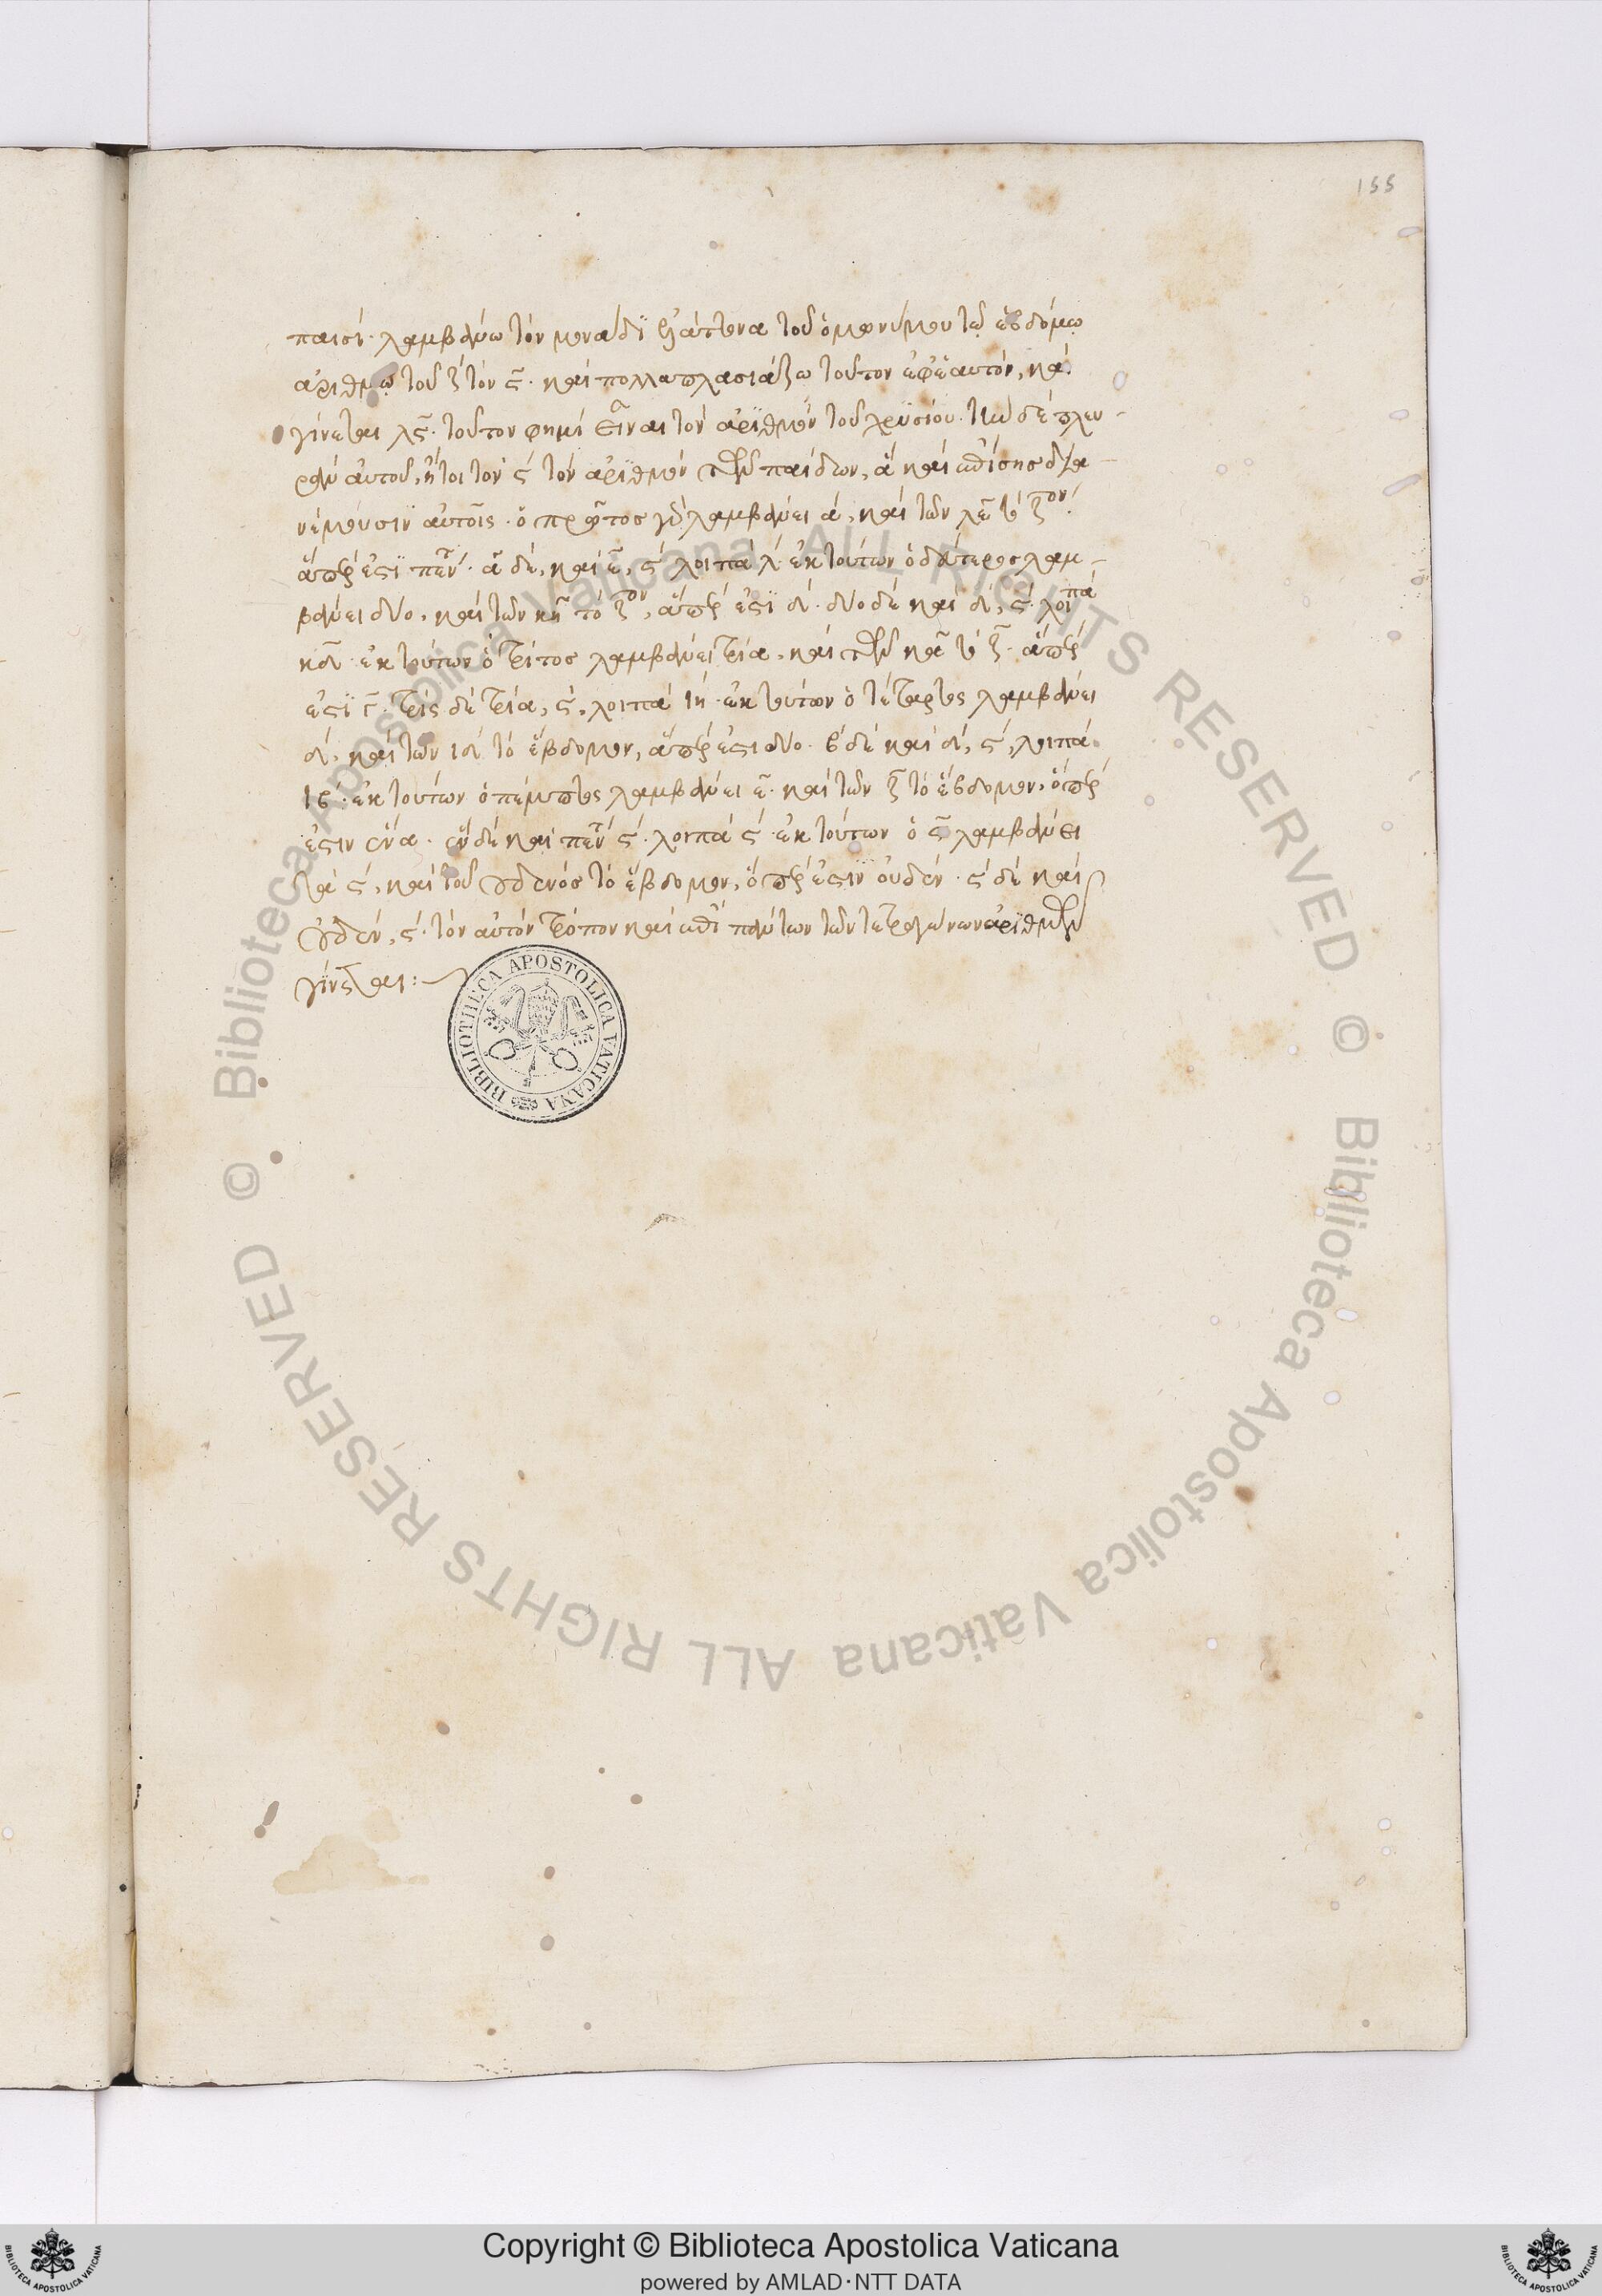 155
παισί. λαμβάνω τὸν μονάδι ἐλάττονα τοῦ ὁμωνύμου τῷ ἑβδόμῳ
ἀριθμῷ τοῦ ζ τὸν ϛ. καὶ πολλαπλασιάζω τοῦτον ἐφ' ἑαυτόν, καὶ
γίνεται λϛ. τοῦτον φημὶ εἶναι τὸν ἀριθμὸν τοῦ χρυσίου. τὴν δὲ πλευ-
ρὰν αὐτοῦ, ἤτοι τὸν ϛ τὸν ἀριθμὸν τῶν παίδων, ἃ καὶ ἐπίσης δια-
νέμουσιν αὐτοῖς. ὁ πρῶτος γὰρ λαμβάνει α, καὶ τῶν λε τὸ ζον.
ἅπερ εἰσὶ πέντε. α δὲ, καὶ ε, ϛ λοιπὰ λ. ἐκ τούτων ὁ δεύτερος λαμ-
βάνει δύο, καὶ τῶν κη τὸ ζον, ἅπερ εἰσὶ δ. δύο δὲ καὶ δ, ϛ. λοιπὰ
κδ. ἐκ τούτων ὁ τρίτος λαμβάνει τρία, καὶ τῶν κα τὸ ζ. ἅπερ
εἰσὶ γ. τρὶς δὲ τρία, ϛ, λοιπὰ ιη. ἐκ τούτων ὁ τέταρτος λαμβάνει
δ, καὶ τῶν ιδ τὸ ἕβδομον, ἅπερ εἰσὶ δύο. β δὲ καὶ δ, ϛ, λοιπὰ
ιβ. ἐκ τούτων ὁ πέμπτος λαμβάνει ε. καὶ τῶν ζ τὸ ἕβδομον, ὅπερ
ἐστὶν ἕνα. ἓν δὲ καὶ πέντε ϛ. λοιπὰ ϛ. ἐκ τούτων ὁ ϛ λαμβάνει
τὰ ϛ, καὶ τοῦ οὐδενὸς τὸ ἕβδομον, ὅπερ ἐστὶν οὐδέν. ϛ δὲ καὶ
οὐδέν, ϛ. τὸν αὐτὸν τρόπον καὶ ἐπὶ πάντων τῶν τετραγώνων ἀριθμῶν
γίνεται:
BIBLIOTHECA APOSTOLICA VATICANA
© Biblioteca Apostolica Vaticana ALL RIGHTS RESERVED
© Biblioteca Apostolica Vaticana ALL RIGHTS RESERVED
BIBLIOTECA APOSTOLICA VATICANA
Copyright © Biblioteca Apostolica Vaticana
powered by AMLAD·NTT DATA
BIBLIOTECA APOSTOLICA VATICANA